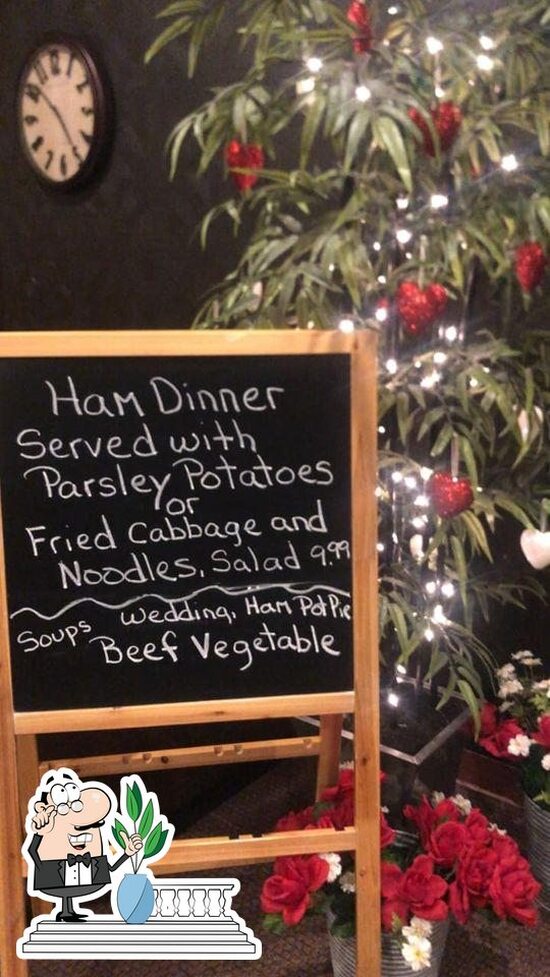 Ham Dinner
Served with
Parsley Potatoes
or
Fried Cabbage and
Noodles, Salad 9.99
Soups Wedding, Ham Pot Pie
Beef Vegetable